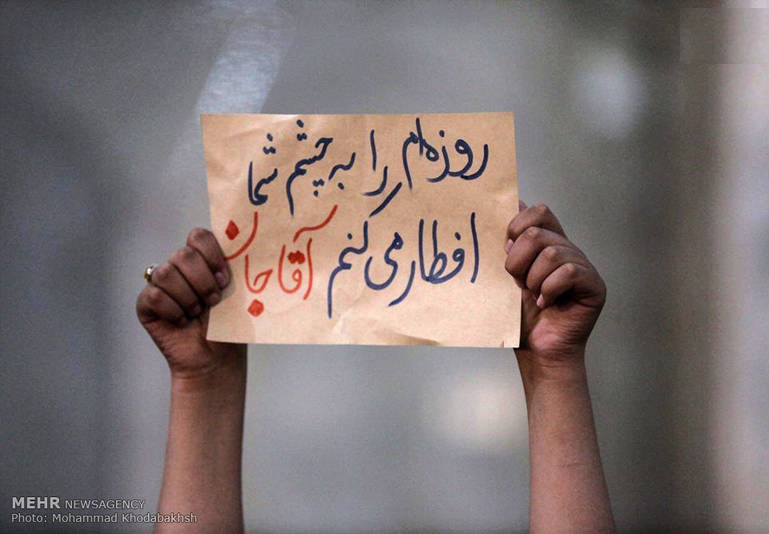 روزه‌ام را به چشم شما
افطار می‌کنم آقا جان
MEHR NEWSAGENCY
Photo: Mohammad Khodabakhsh